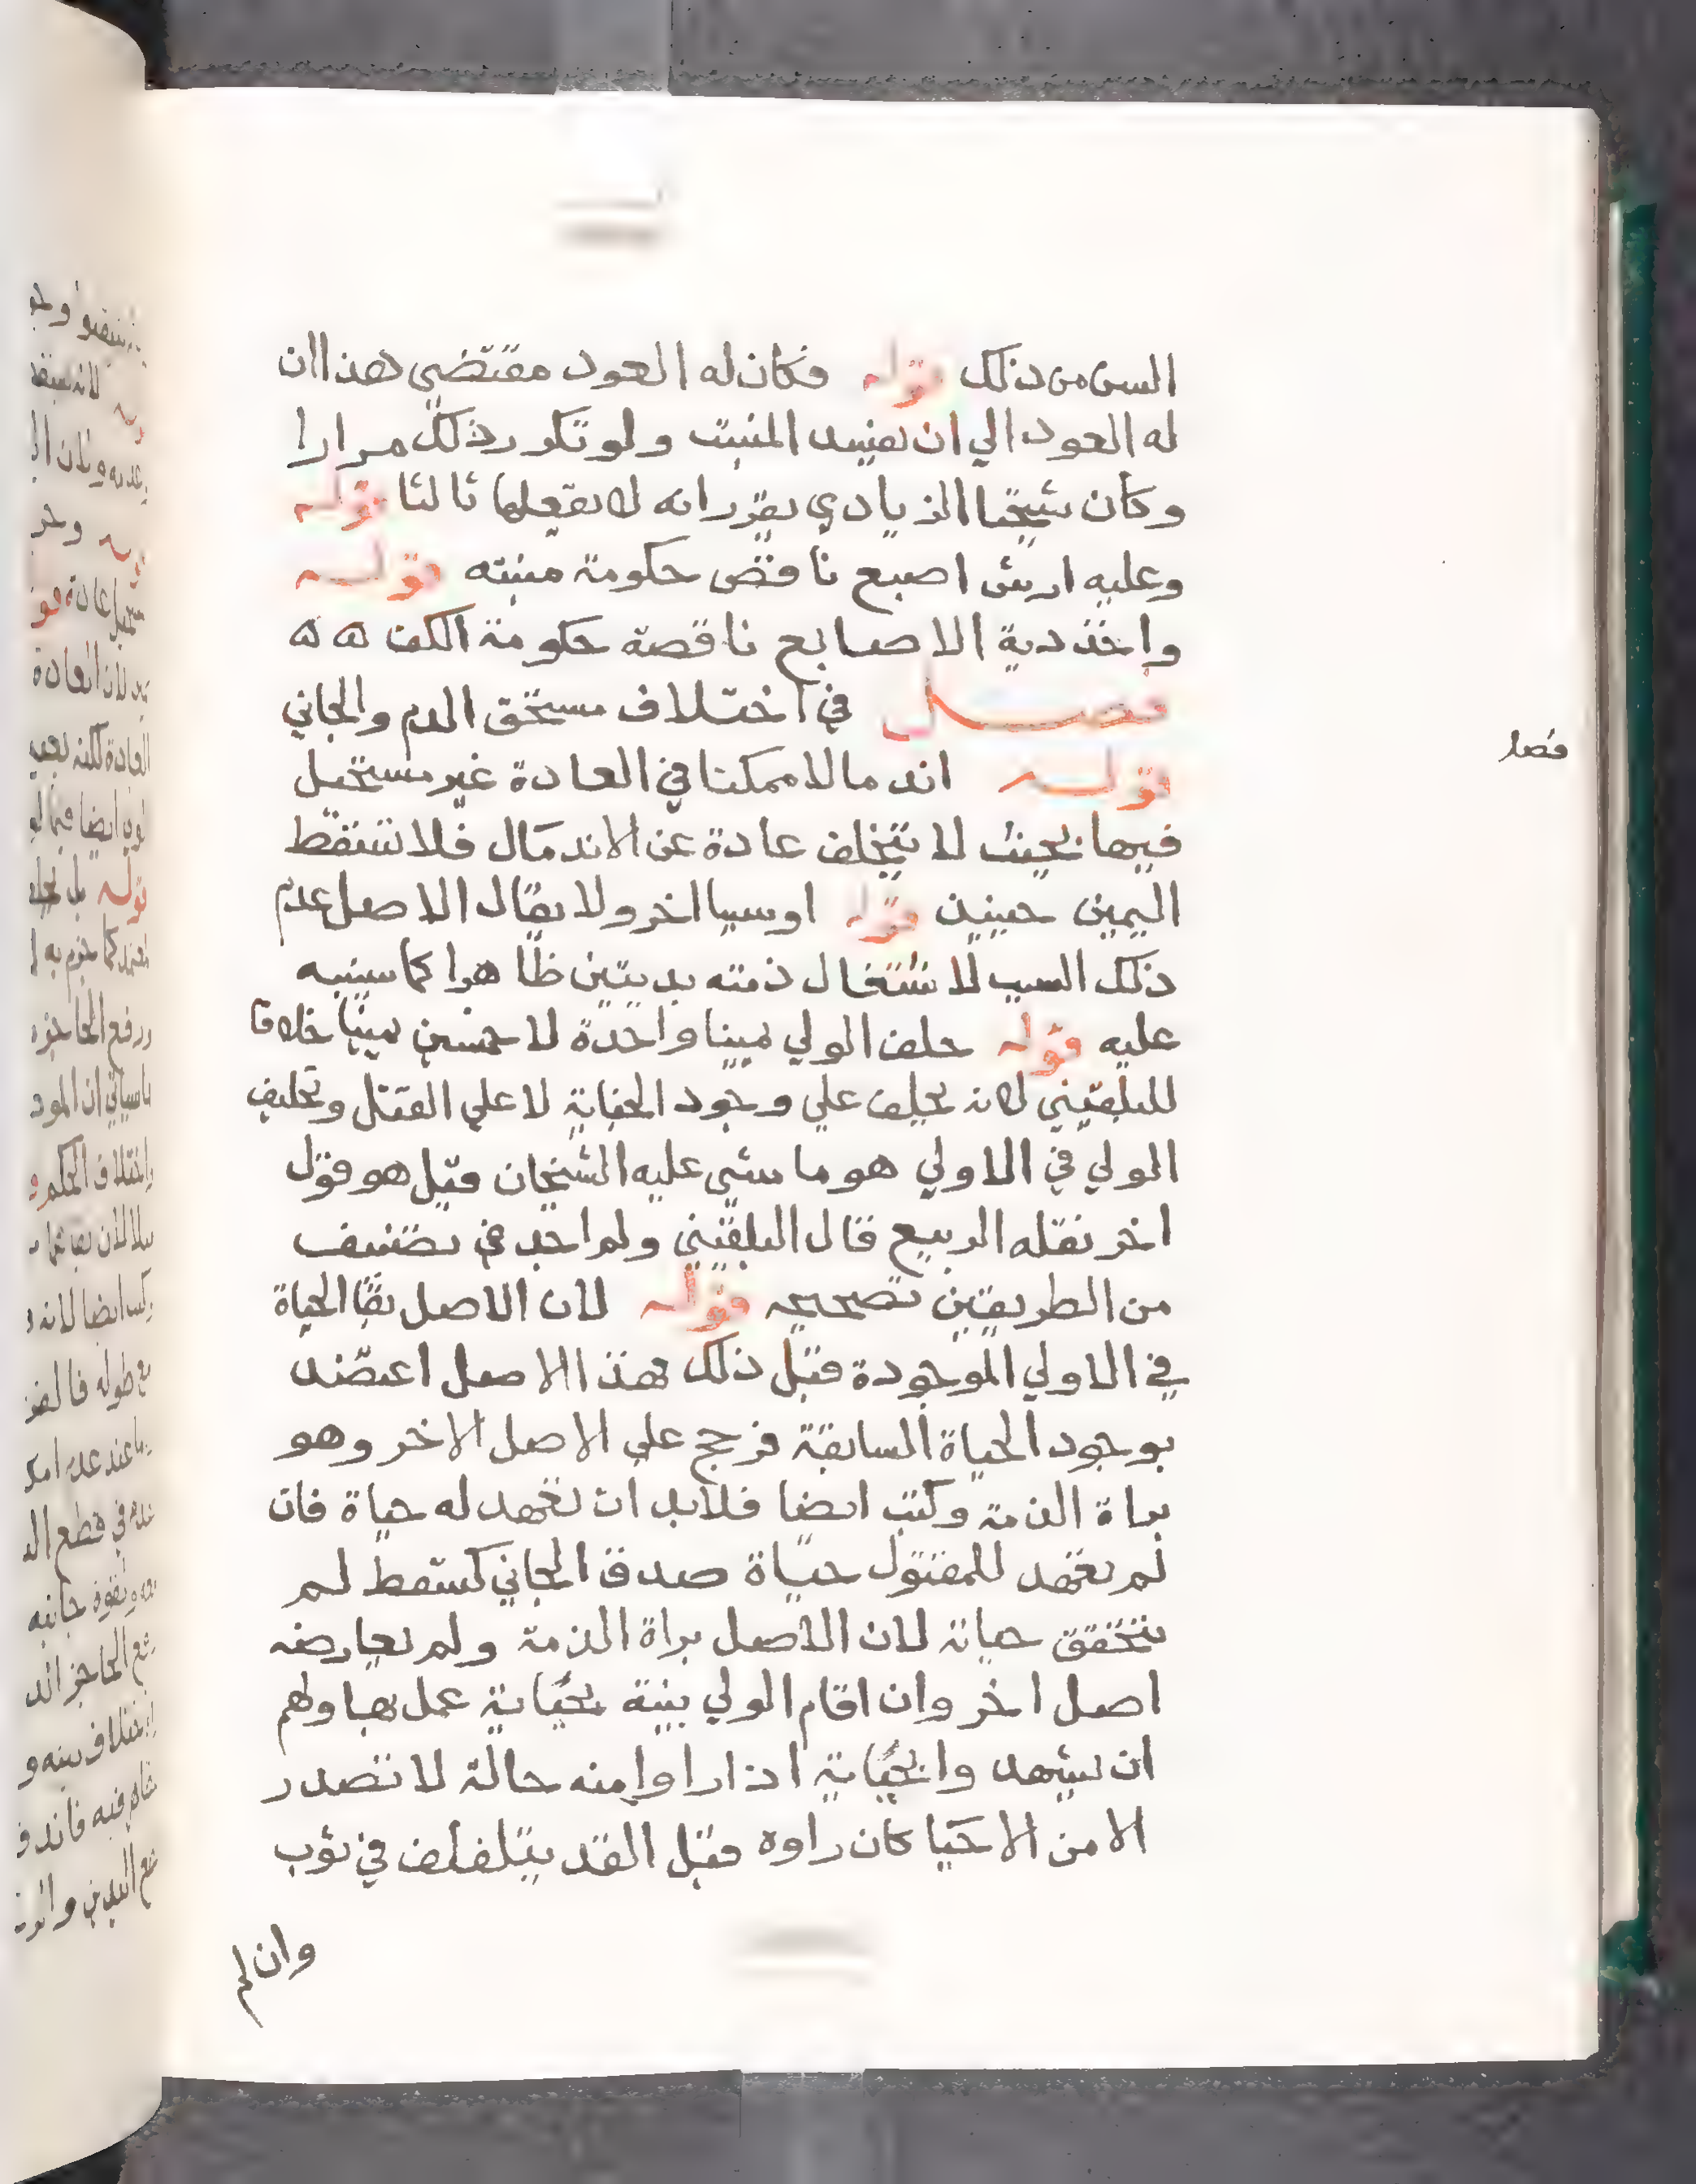 السن من ذلك قوله فكان له العود مقتضي هذا ان
له العود الي ان يفسد المنبت ولو تكرر ذلك مرارا
وكان شيخنا الزيادي يقرر انه لا يقعلها ثالثا قوله
وعليه ارش اصبع ناقص حكومة منبته قوله
واخذ دية الاصابع ناقصة حكومة الكف ه ه
فصل في اختلاف مستحق الدم والجاني
قوله اندمالا ممكنا في العادة غير مستحيل
فيها بحيث لا يتخلف عادة عن الاندمال فلا تسقط
اليمين حينيذ قوله او سببا اخر ولا يقال الاصل عدم
ذلك السبب لاشتغال ذمته بديتين ظاهرا كما سينبه
عليه قوله حلف الولي يمينا واحدة لا خمسين يمينا خلافا
للبلقيني لانه يحلف علي وجود الجناية لا علي القتل وتحليف
الولي في الاولي هو ما مشي عليه الشيخان قيل هو قول
اخر نقله الربيع قال البلقيني ولم اجد في تصنيف
من الطريقين تصحيحه قوله لان الاصل بقا الحياة
في الاولي الموجودة قبل ذلك هذا الاصل اعتضد
بوجود الحياة السابقة فرجح علي الاصل الاخر وهو
براة الذمة وكتب ايضا فلابد ان تعهد له حياة فان
لم تعهد للمقتول حياة صدق الجاني كسقط لم
تتحقق حياته لان الاصل براة الذمة ولم يعارضه
اصل اخر وان اقام الولي بينة بحياته عمل بها ولهم
ان يشهدوا بحياته اذا راوا منه حالة لا تصدر
الا من الاحيا كان راوه قبل القد يتلفلف في ثوب
وان لم
فصل